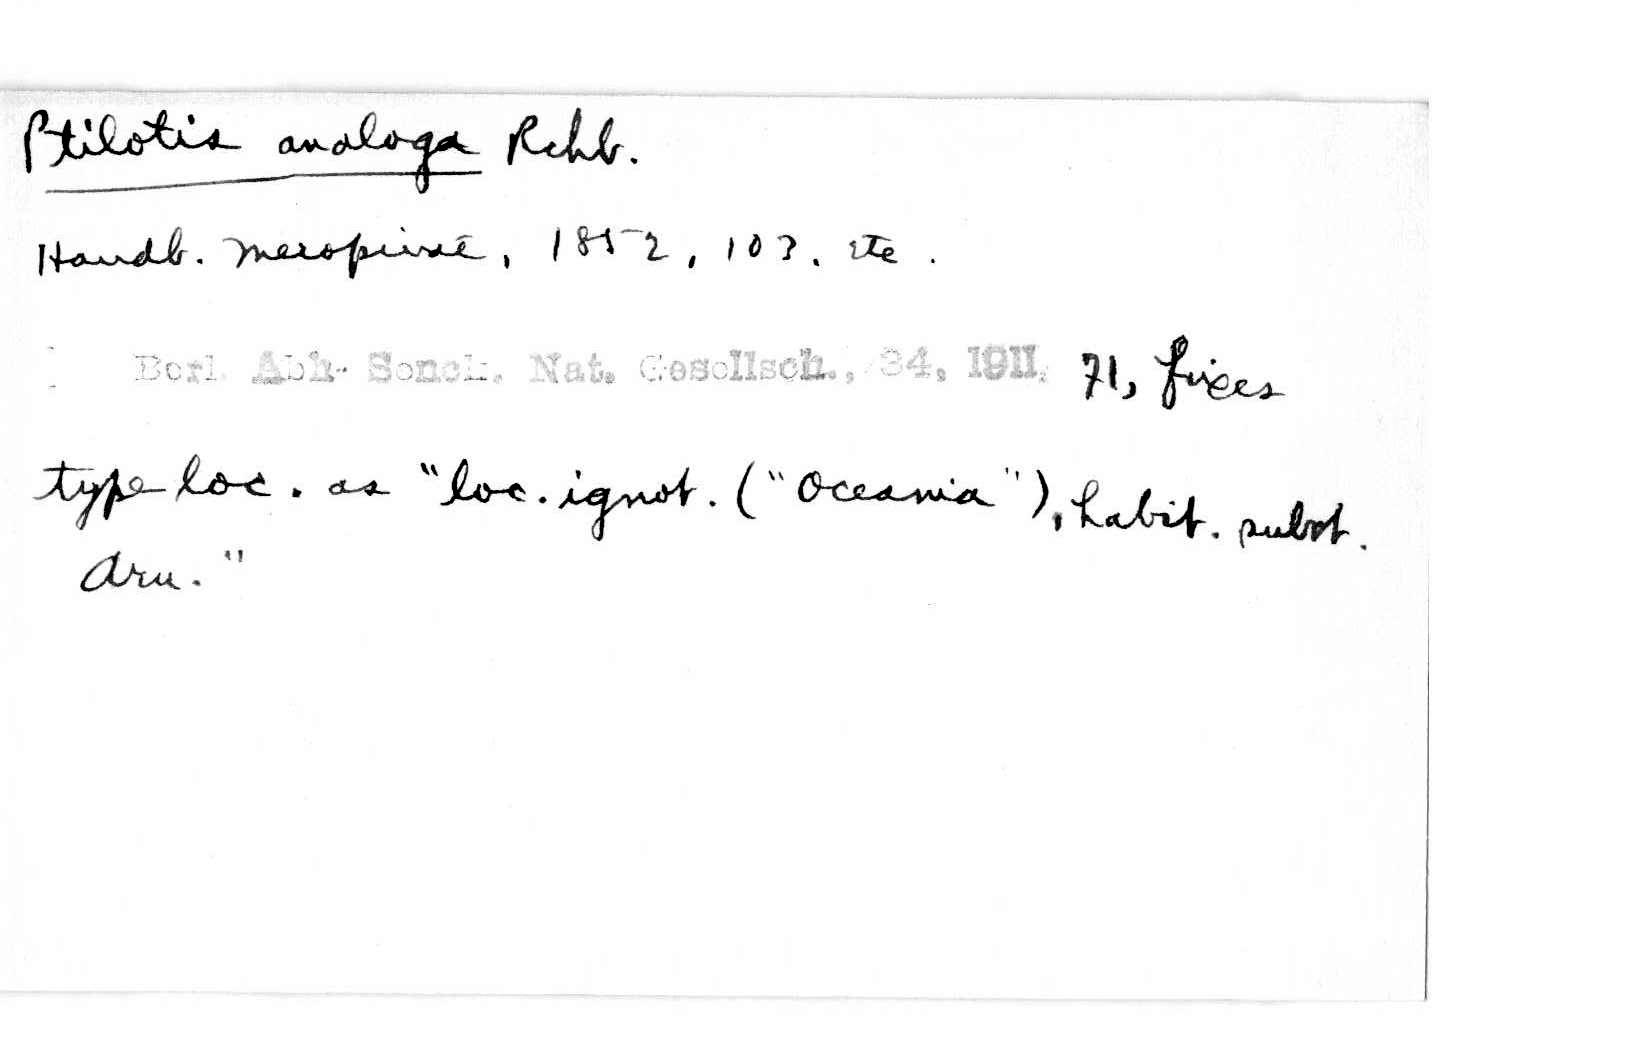 Ptilotis analoga Rchb.
Handb. Meropinae, 1852, 103. etc.
Berl. Abh. Senck. Nat. Gesellsch., 34, 1911, 71, fixes
type loc. as "loc. ignot. ("Oceania"), habit. subst.
Aru."